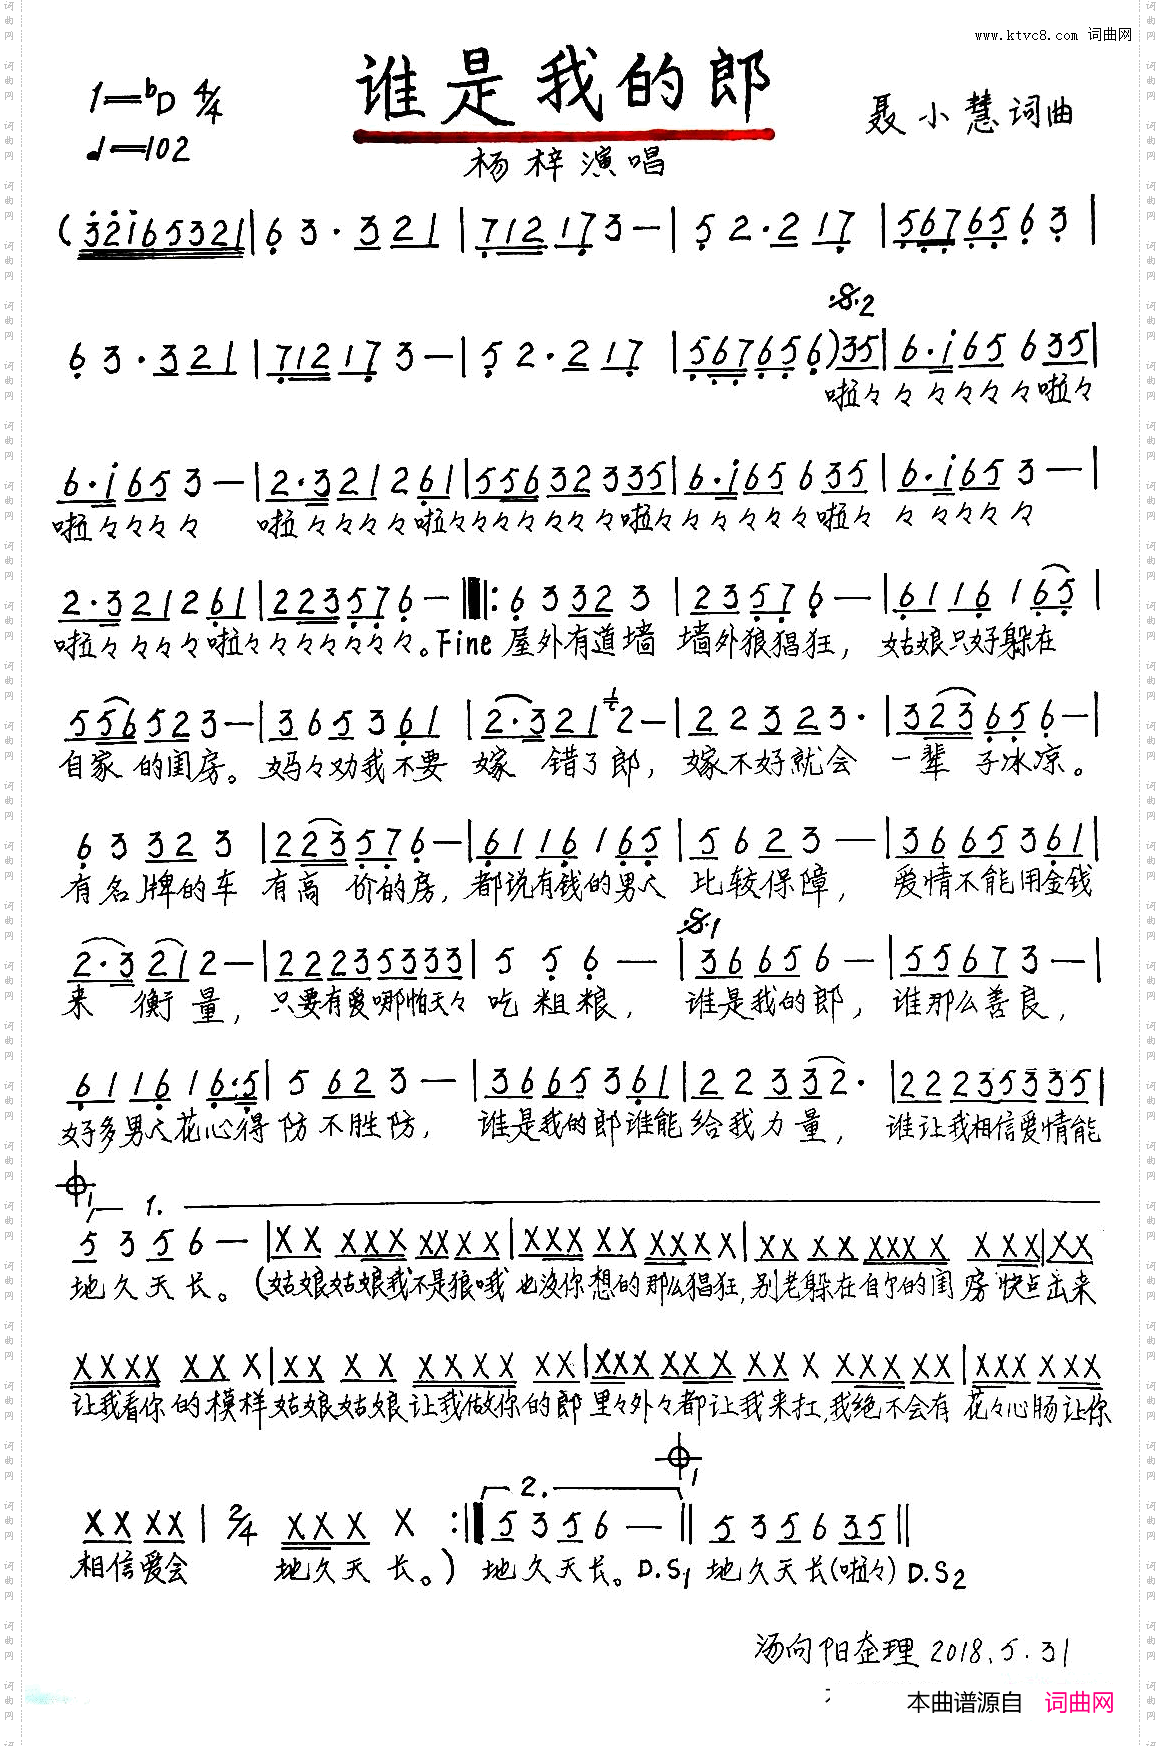 www.ktvc8.com 词曲网
谁是我的郎
1=♭D 4/4
♩=102
聂小慧词曲
杨梓演唱
(3̇2̇1̇65321|63·321|712173—|52·217|5676563|
63·321|712173—|52·217|567656)35|6·1̇65635|
𝄋2
啦々々々々々々啦々
6·1̇653—|2·321261|5563233​5|6·1̇65635|6·1̇653—|
啦々々々々 啦々々々々啦々々々々々々々啦々々々々々々啦々 々々々々々
2·321261|223576—‖:63323|235​76—|6116165|
啦々々々々啦々々々々々々々。Fine 屋外有道墙 墙外狼猖狂，姑娘只好躲在
556523—|365361|2·3212—|2232​3·|323656—|
自家的闺房。妈々劝我不要 嫁 错了郎，嫁不好就会 一辈 子冰凉。
63323|223576—|6116165|5623—|3665361|
有名牌的车 有高 价的房，都说有钱的男人 比较保障， 爱情不能用金钱
𝄋1
2·3212—|22235333|556—|36656—|55673—|
来 衡量，只要有爱哪怕天々 吃粗粮， 谁是我的郎，谁那么善良，
611616·5|5623—|3665361|22332·|22235335|
好多男人花心得 防不胜防， 谁是我的郎谁能 给我力量， 谁让我相信爱情能
𝄌1 1.
5356—|XX XXX XXXX|XXX XX XXXX X|XX XX XXX X X XXX|XX
地久天长。(姑娘姑娘我不是狼哦 也没你想的那么猖狂,别老躲在自个的闺房 快点出来
XXXX XX X|XX XX XXXX XX|XXX XXX XX X XXXXX|XXX XXX
让我看你的模样 姑娘姑娘让我做你的郎 里々外々都让我来扛,我绝不会有 花々心肠让你
𝄌1
2.
XX XX|2/4 XXX X :‖5356—‖535635‖
相信爱会 地久天长。) 地久天长。D.S1 地久天长(啦々) D.S2
汤向阳整理 2018.5.31
本曲谱源自 词曲网